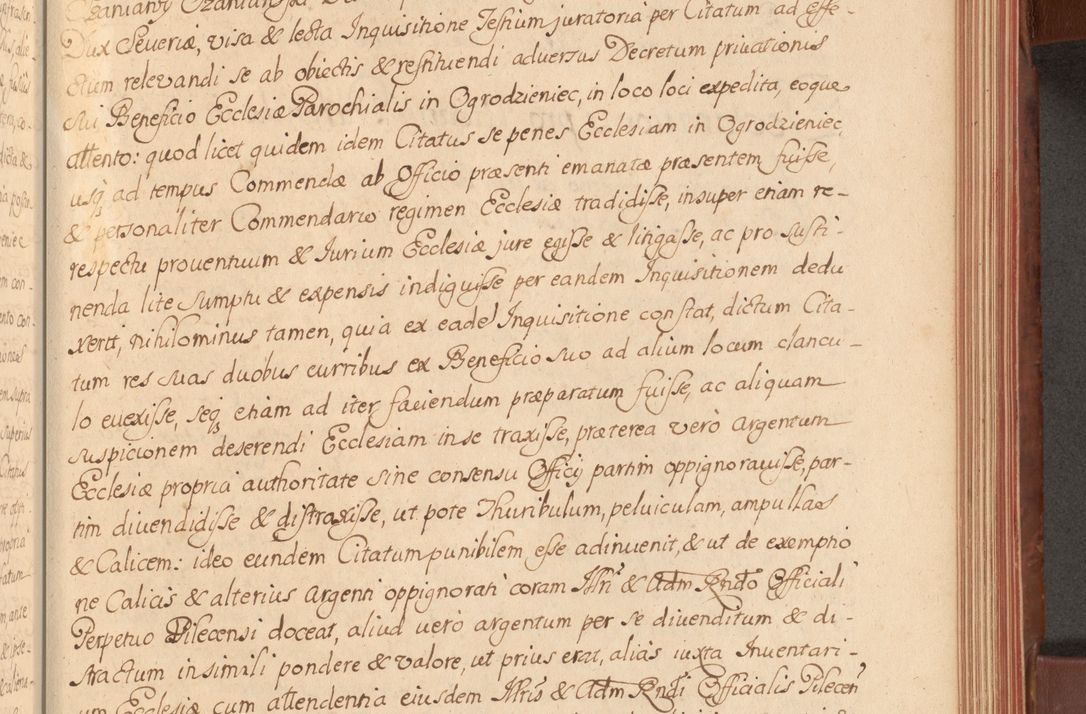 Dux Severiæ, visa & lecta Inquisitione Testium juratoria per Citatum ad effe-
ctum relevandi se ab obiectis & restituendi adversus Decretum privationis
sui Beneficio Ecclesiæ Parochialis in Ogrodzieniec, in loco loci expedita, eoque
attento: quod licet quidem idem Citatus se penes Ecclesiam in Ogrodzieniec,
usq ad tempus Commendæ ab Officio præsenti emanatæ præsentem fuisse,
& personaliter Commendario regimen Ecclesiæ tradidisse, insuper etiam re-
respectu proventuum & Iurium Ecclesiæ jure egisse & litigasse, ac pro susti-
nenda lite sumptu & expensis indiguisse per eandem Inquisitionem dedu
xerit, nihilominus tamen, quia ex eade Inquisitione constat, dictum Cita-
tum res suas duobus curribus ex Beneficio suo ad alium locum clancu-
lo evexisse, seq etiam ad iter faciendum præparatum fuisse, ac aliquam
suspicionem deserendi Ecclesiam in se traxisse, præterea verò argentum
Ecclesiæ propria authoritate sine consensu Officij partim oppignoravisse, par-
tim divendidisse & distraxisse, ut pote Thuribulum, pelviculam, ampullas
& Calicem: ideo eundem Citatum punibilem esse adinvenit, & ut de exemptio
ne Calicis & alterius argenti oppignorati coram Illri & Adm Rndo Officiali
Perpetuo Pilecensi doceat, aliud verò argentum per se divenditum & di-
stractum in simili pondere & valore, ut prius erat, alias iuxta Inventari-
um Ecclesiæ cum attendentia eiusdem Illris & Adm Rndi Officialis Pilecen